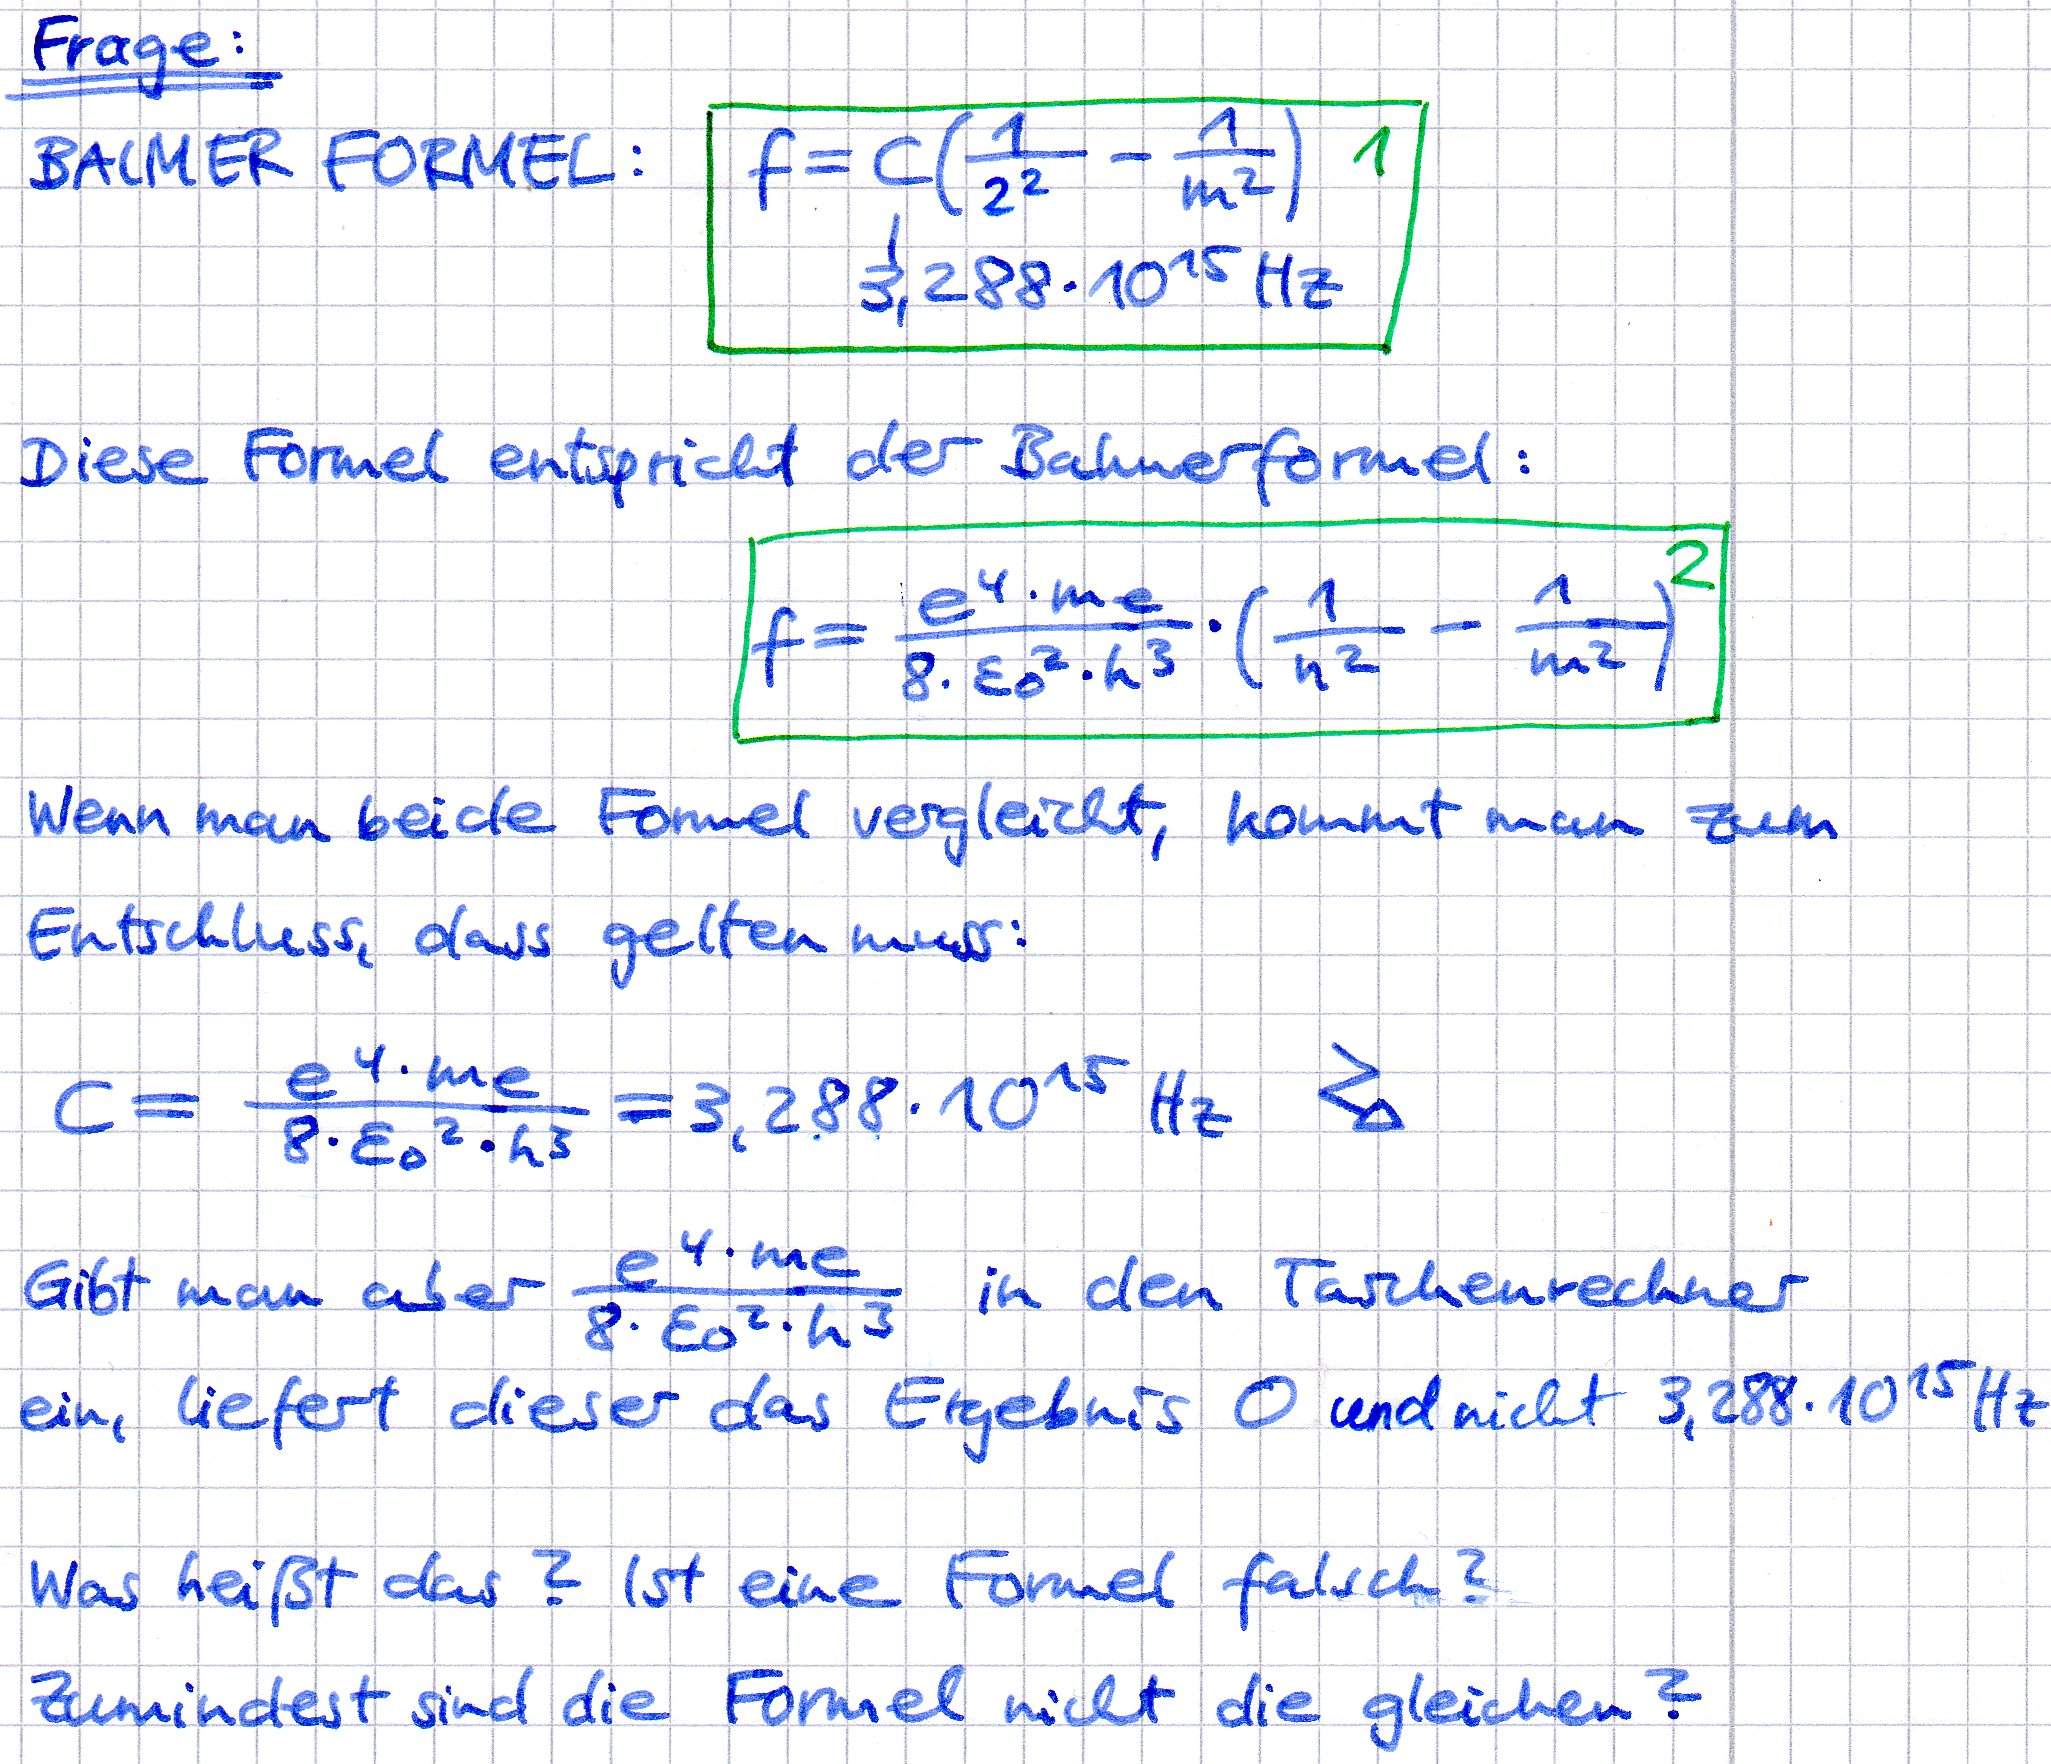 Frage:
BALMER FORMEL: f = C(1/2² - 1/m²) 1
3,288·10¹⁵ Hz
Diese Formel entspricht der Balmerformel:
f = e⁴·me / 8·ε₀²·h³ · (1/n² - 1/m²) 2
Wenn man beide Formel vergleicht, kommt man zum
Entschluss, dass gelten muss:
C = e⁴·me / 8·ε₀²·h³ = 3,288·10¹⁵ Hz
Gibt man aber e⁴·me / 8·ε₀²·h³ in den Taschenrechner
ein, liefert dieser das Ergebnis 0 und nicht 3,288·10¹⁵ Hz
Was heißt das? Ist eine Formel falsch?
Zumindest sind die Formel nicht die gleichen?